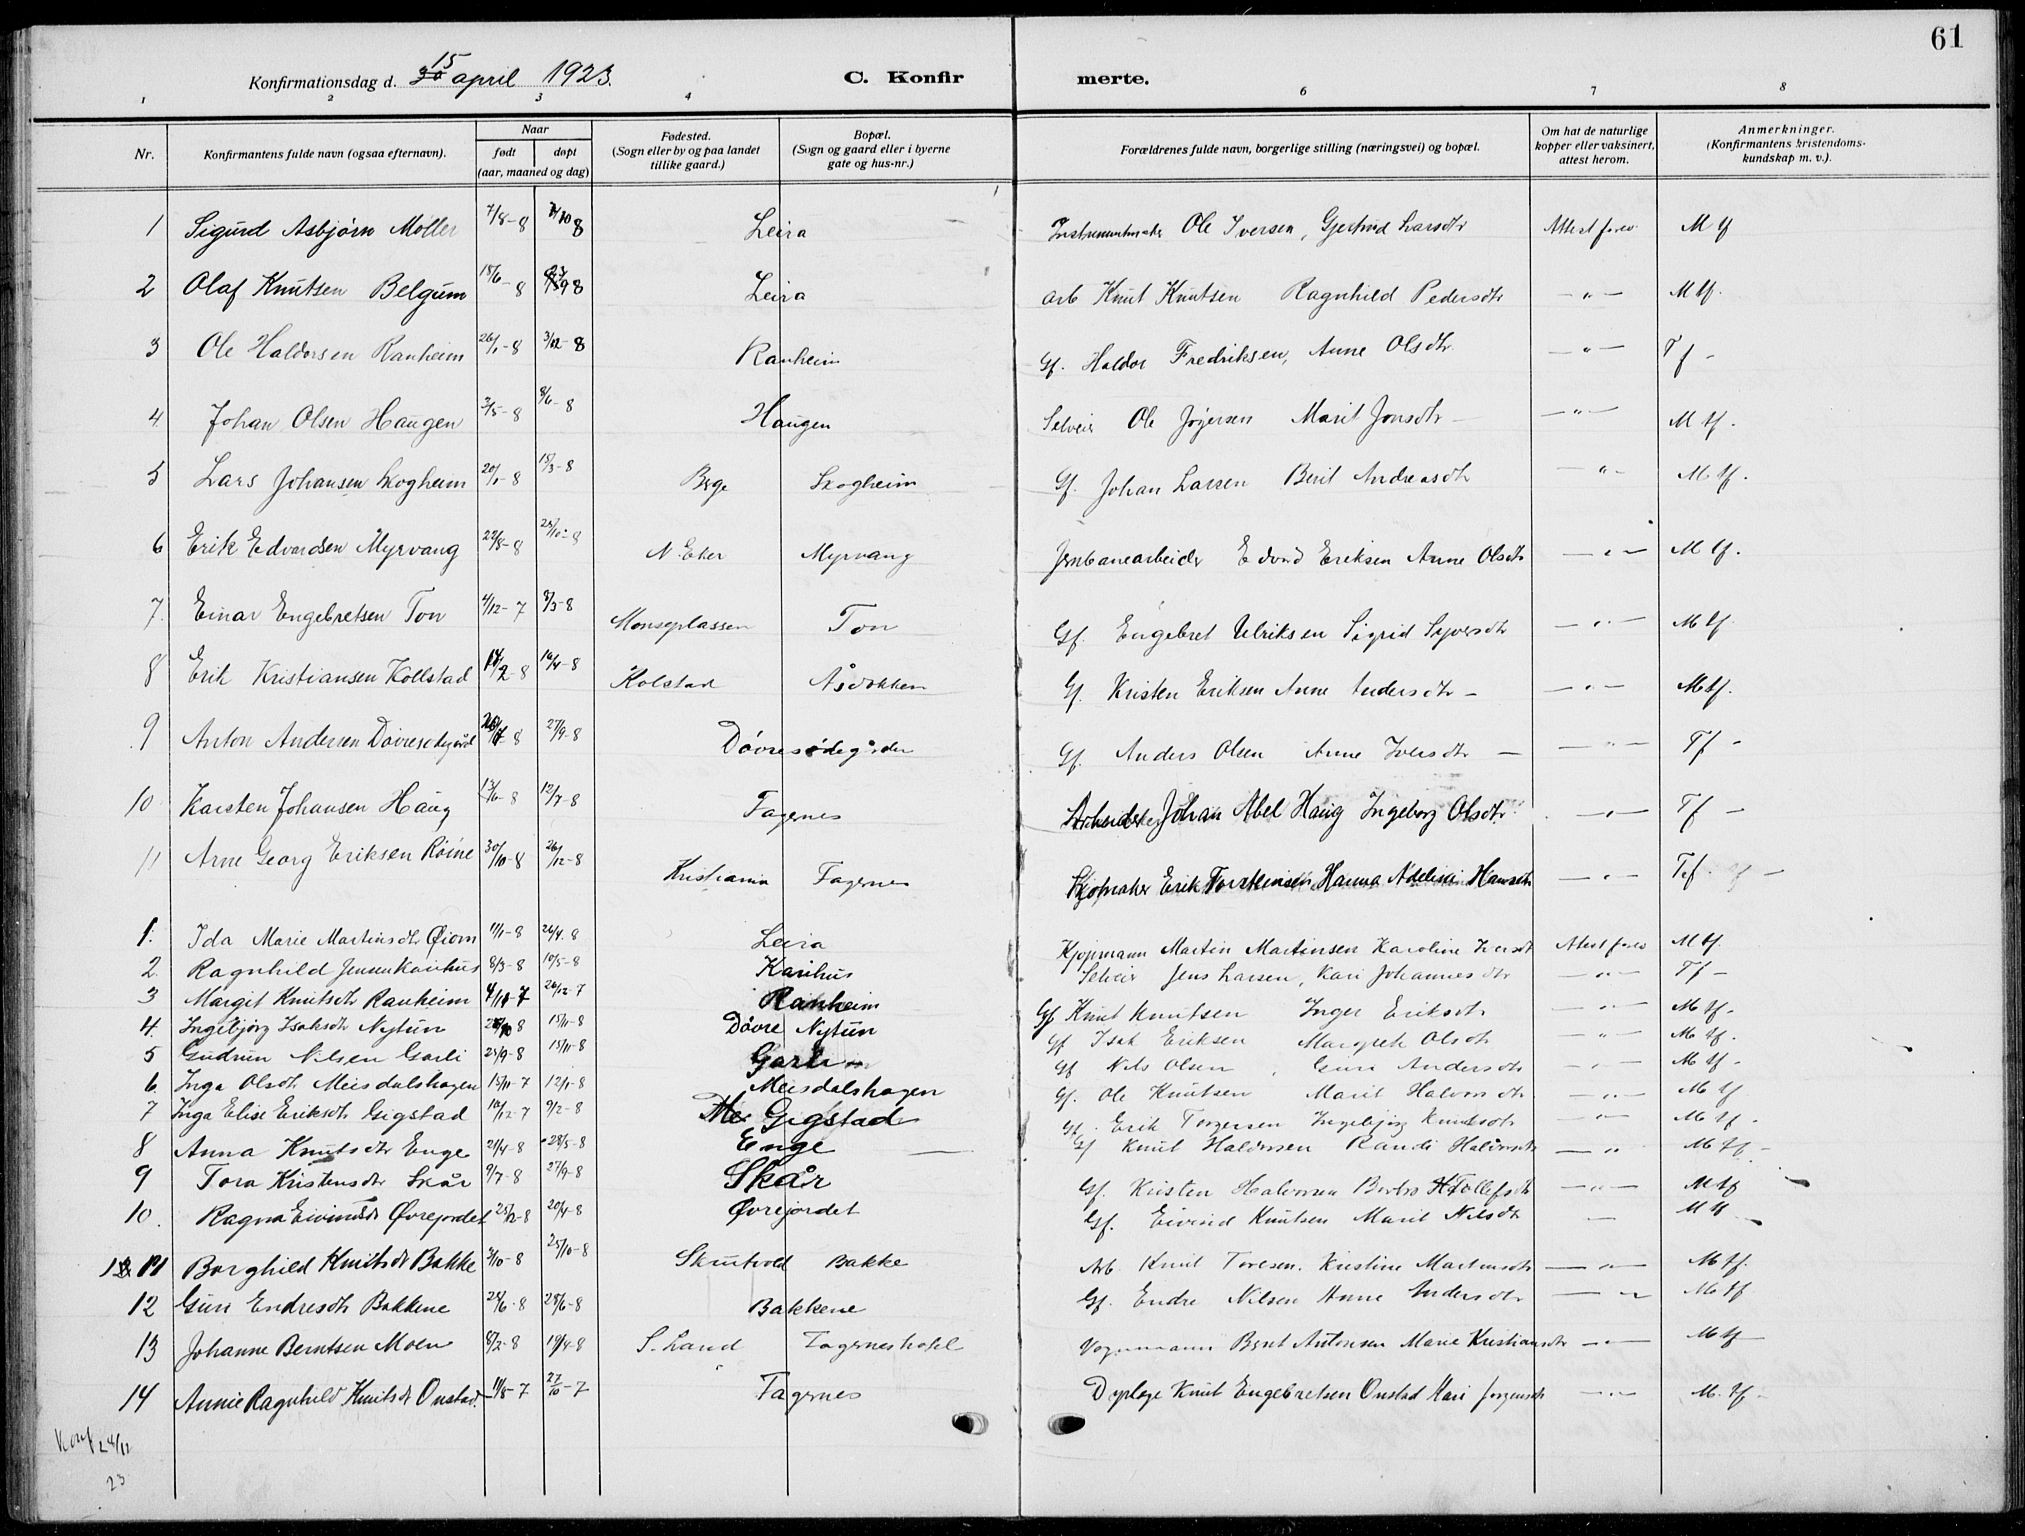 61
15
Konfirmationsdag d. 30 april 1923. C. Konfirmerte.
1 2 3 4 6 7 8
Nr. Konfirmantens fulde navn (ogsaa efternavn). Naar født døpt (aar, maaned og dag) Fødested. (Sogn eller by og paa landet tillike gaard.) Bopæl. (Sogn og gaard eller i byerne gate og hus-nr.) Forældrenes fulde navn, borgerlige stilling (næringsvei) og bopæl. Om hat de naturlige kopper eller vaksinert, attest herom. Anmerkninger. (Konfirmantens kristendoms-kundskap m. v.).
1 Sigurd Asbjørn Møller 7/8-8 /10 8 Leira Instrumentmaker Ole Iversen, Gjertrud Larsdtr Attest forev. M tf
2 Olaf Knutsen Belgum 15/6-8 8 Leira Arb Knut Knutsen Ragnhild Pedersdtr —"— M tf.
3 Ole Haldorsen Ranheim 26/1-8 3/12-8 Ranheim Gf. Haldor Fredriksen, Anne Olsdtr. —"— Tf -
4 Johan Olsen Haugen 3/5-8 8/6-8 Haugen Selveier Ole Marit Jonsdtr —"— M tf.
5 Lars Johansen Skogheim 20/1-8 15/3-8 Berge Skogheim Gf. Johan Larsen Berit Andreasdtr —"— M tf.
6 Erik Edvardsen Myrvang 22/8-8 25/10-8 N. Eker Myrvang Jernbanearbeider Edvard Eriksen Anne Olsdtr —"— M tf.
7. Einar Engebretsen Ton 4/12-7 8/3-8 Monseplassen Ton Gf. Engebret Ulriksen Sigrid Syversdtr —"— M tf
8 Erik Kristiansen Kollstad /2-8 16/4-8 Kolstad Åsdokken Gf. Kristen Eriksen Anne Andersdtr - —"— M tf.
9 Anton Andersen Døvresødegård 8 27/9-8 Døvresødegården Gf. Anders Olsen Anne Iversdtr — —"— Tf -
10 Karsten Johansen Haug 13/6-8 12/7-8 Fagernes Arbeider Johan Abel Haug Ingeborg Olsdtr. —"— Tf —
11 Arne Georg Eriksen Röine 30/10-8 26/12-8 Kristiania Fagernes Skomaker Erik Torstensen Hanna Adeline Hansdtr —"— T.f. —
1. Ida Marie Martinsdtr Øiom 11/1-8 26/4-8 Leira Kjøpmann Martin Martinsen Karoline Iversdtr Attest forev M tf.
2. Ragnhild Jensen Karihus 8/3-8 10/5-8 Karihus Selveier Jens Larsen, Kari Johannesdtr —"— Tf —
3 Margit Knutsdtr Ranheim 4/11-7 26/12-7 Ranheim Gf Knut Knutsen Inger Eriksdtr —"— M tf.
4. Ingebjørg Isaksdtr Nytun /10 8 15/11-8 Døvre Nytun Gf Isak Eriksen Margrete Olsdtr —"— M tf.
5 Gudrun Nilsen Garli 25/9-8 15/11-8 Garli Gf Nils Olsen, Guri Andersdtr —"— M tf -
6 Inga Olsdtr Meisdalshagen 15/11-7 12/1-8 Meisdalshagen Gf. Ole Knutsen Marit Halvorsdtr —"— M tf
7 Inga Elise Eriksdtr Gigstad 10/12-7 9/2-8 Gigstad Gf. Erik Torgersen Ingebjørg Knutsdtr —"— M tf.
8 Anna Knutsdtr Enge 21/4-8 28/5-8 Enge Gf Knut Haldorsen Randi Halvorsdtr —"— M tf -
9 Tora Kristensdtr Skår 9/7-8 27/9-8 Skår Gf. Kristen Halvorsen Barbro Tollefsdtr —"— M tf
10. Ragna Eivindsdtr Øvrejordet 25/2-8 20/4-8 Øvrejordet Gf. Eivind Knutsen Marit Nilsdtr — M tf
11 Borghild Knutsdtr Bakke 3/10-8 25/10-8 Skrutvold Bakke Arb. Knut Toresen. Kristine Martinsdtr —"— M tf.
12 Guri Endresdtr Bakkene 24/6-8 28/6-8 Bakkene Gf. Endre Nilsen Anne Andersdtr —"— M tf
13 Johanne Berntsen Moen 8/2-8 19/4-8 S. Land Fagernes hotel Vognmann Bernt Antonsen Marie Kristiansdtr —"— M tf
14 Annie Ragnhild Knutsdtr Onstad. 11/8-7 27/10-7 Fagernes Dyrlæge Knut Engebretsen Onstad Kari Jørgensdtr —"— M. tf -
Konf 28/11
23